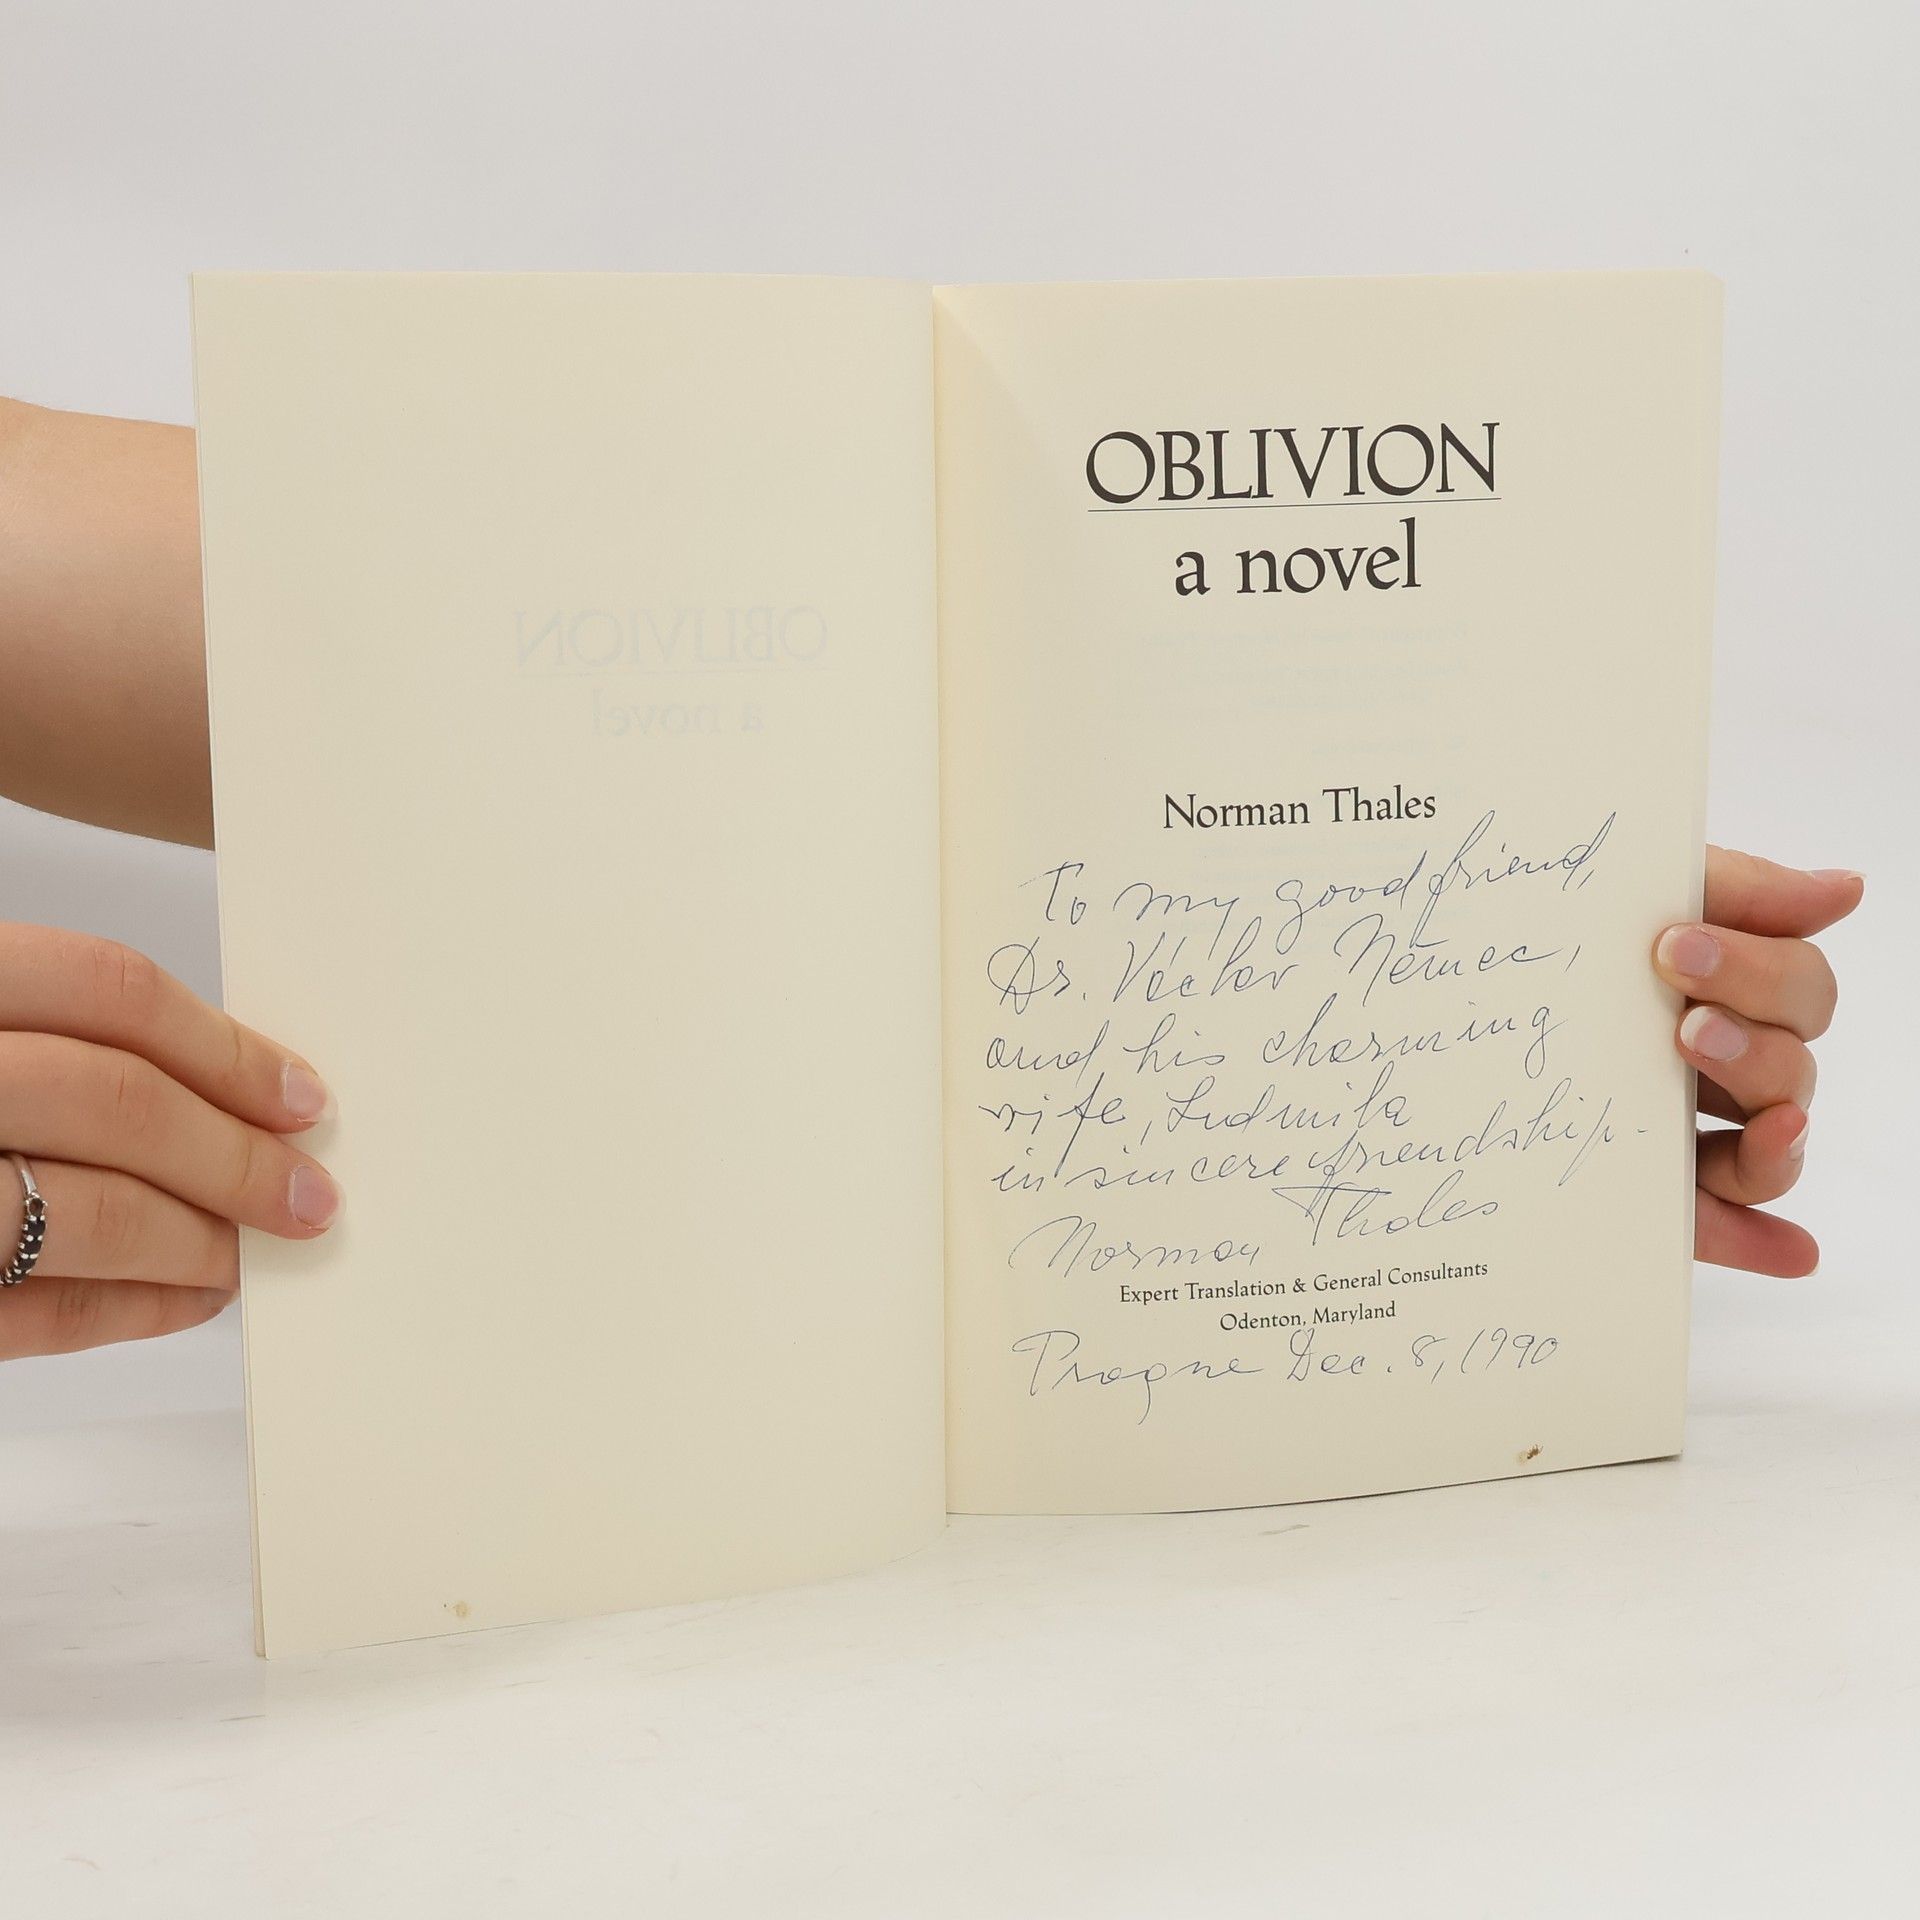 OBLIVION
a novel
OBLIVION
a novel
Norman Thales
To my good friend,
Dr. Václav Němec,
and his charming
wife, Ludmila
in sincere friendship.
Norman Thales
Expert Translation & General Consultants
Odenton, Maryland
Prague Dec. 8, 1990